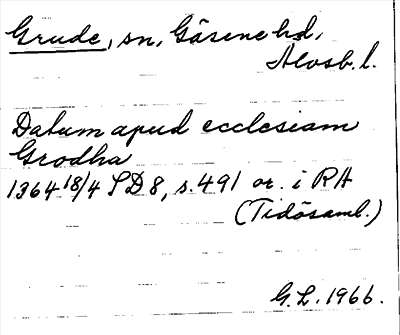 Grude, sn, Gäsene hd,
Älvsb. l.
Datum apud ecclesiam
Grodha
1364 18/4 SD 8, s. 491 or. i RA
(Tidösaml.)
G. L. 1966.